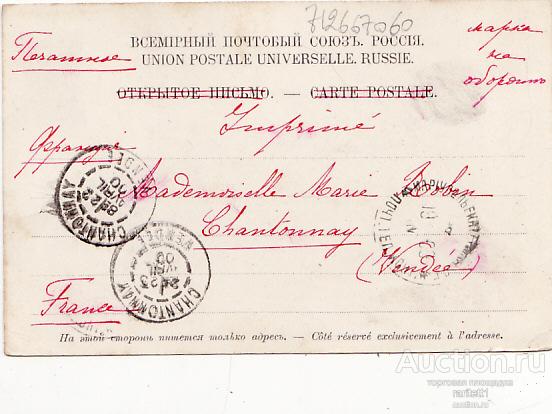 712667060
Печатное
марка
на
обороте
ВСЕМІРНЫЙ ПОЧТОВЫЙ СОЮЗЪ. РОССІЯ.
UNION POSTALE UNIVERSELLE. RUSSIE.
ОТКРЫТОЕ ПИСЬМО. — CARTE POSTALE.
Imprimé
Франція
Mademoiselle Marie Robin
Chantonnay
(Vendée)
France
CHANTONNAY
VENDÉE
AVRIL
00
CHANTONNAY
VENDÉE
AVRIL
00
На этой сторонѣ пишется только адресъ. — Côté réservé exclusivement à l'adresse.
Auction.ru
торговая площадка
raritet1
auction.ru